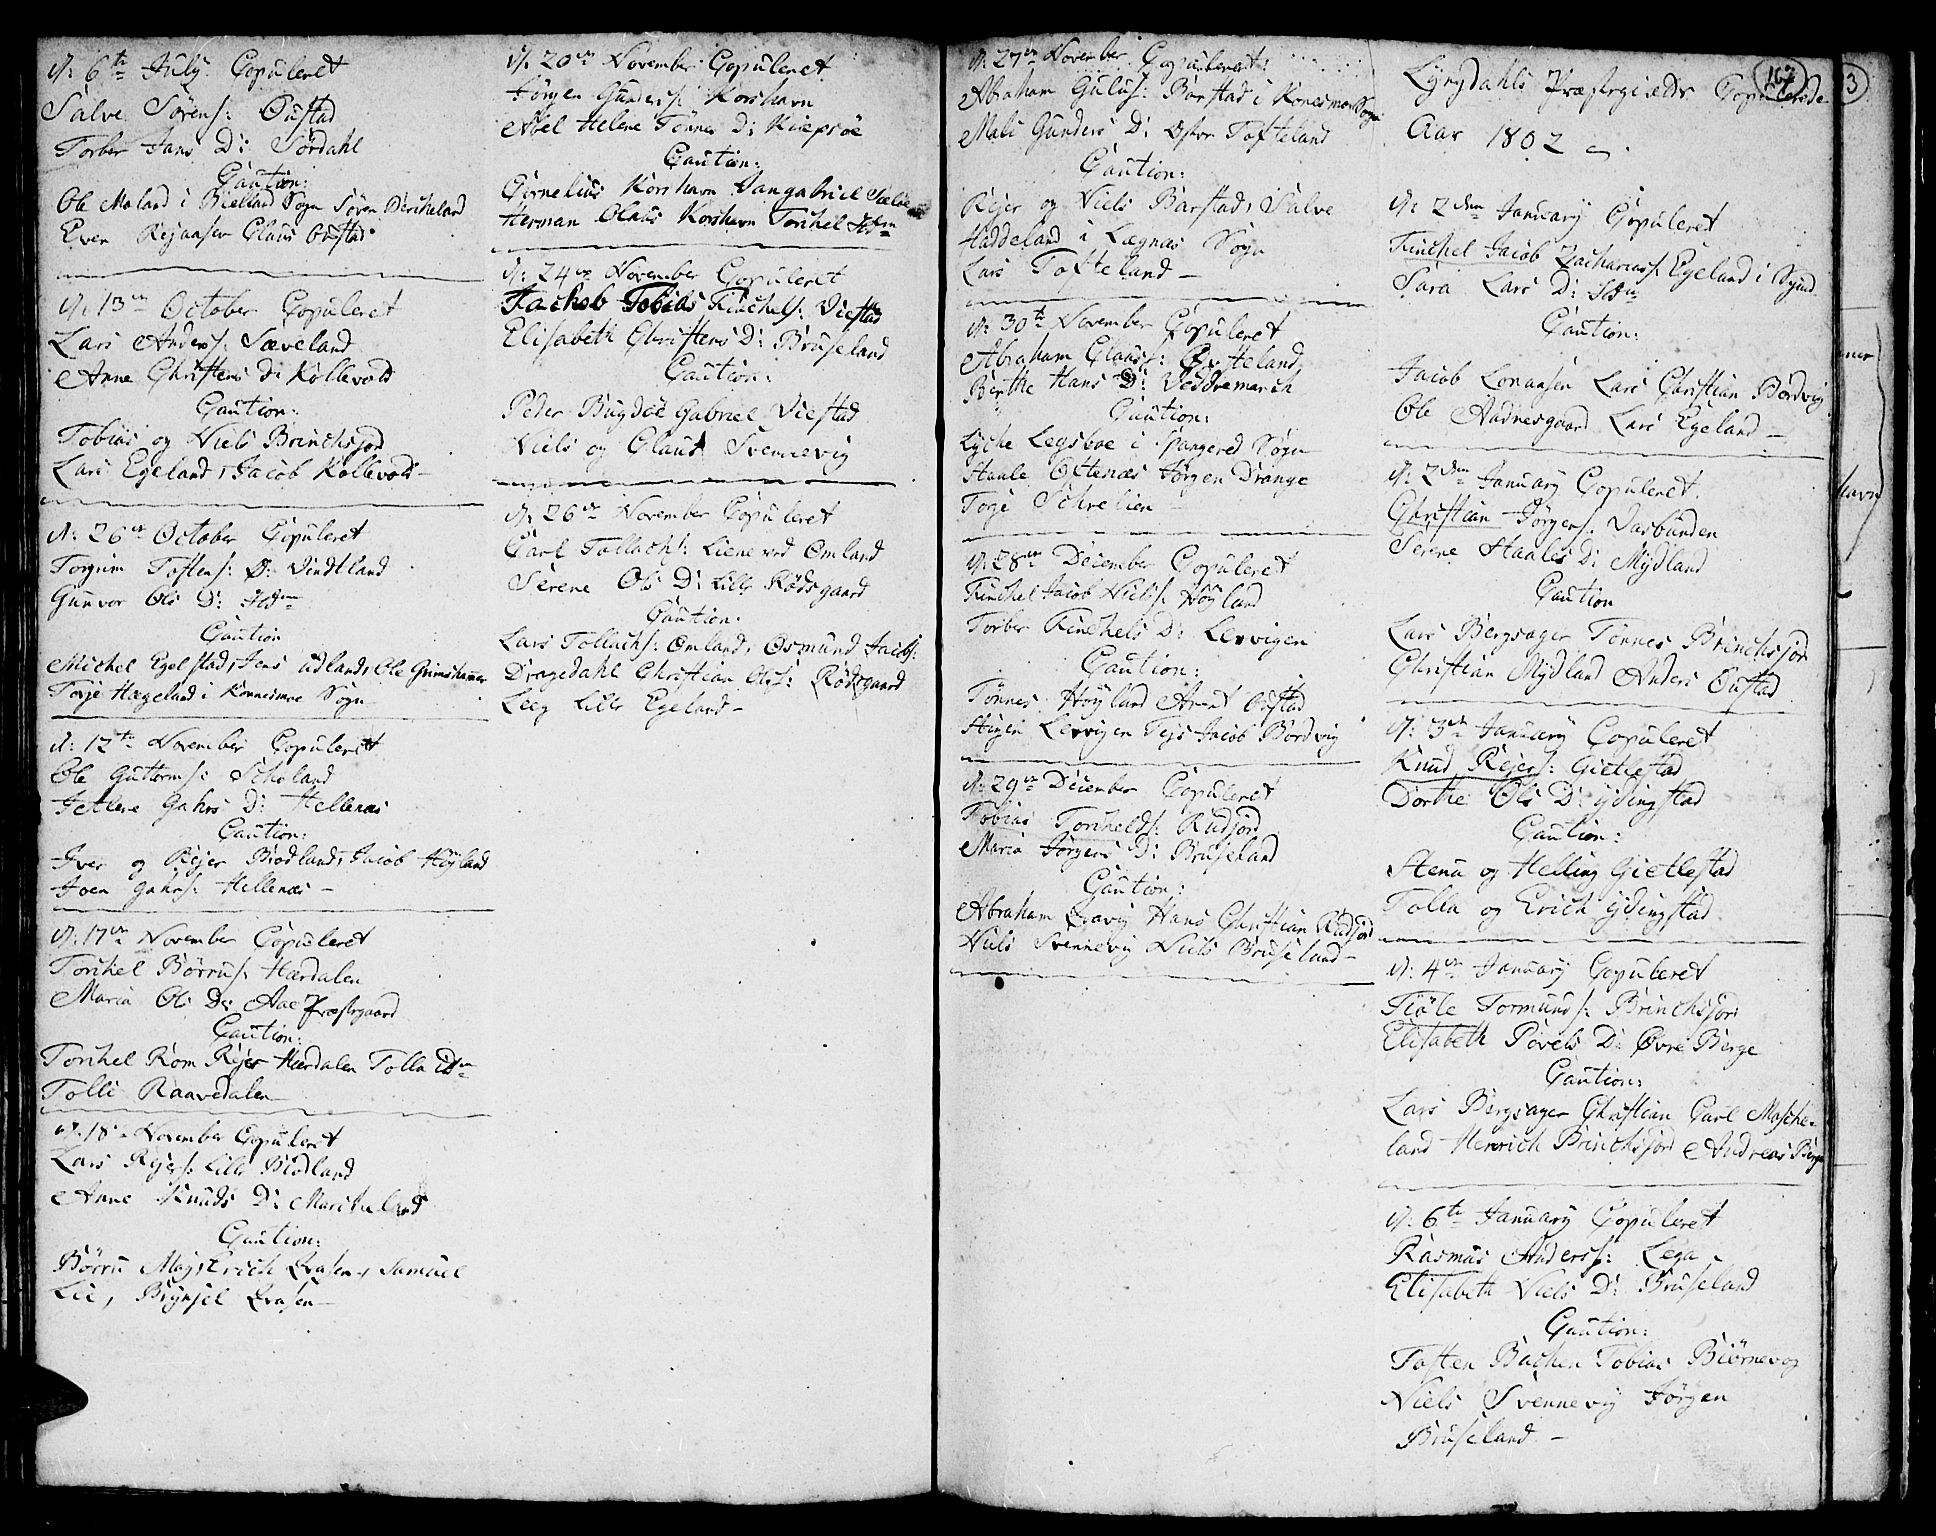 d: 6te July Copuleret
Salve Sørens: Oustad
Torber Jans D: Sørdahl
Caution:
Ole Maland i Bielland Sogn Søren Dircheland
Even Rejersen Claus Oustad
d: 13de October Copuleret
Lars Anders: Sæveland
Anne Christens D: Kollevold
Caution:
Tobias og Niels Brinchsjor
Lars Egeland, Jacob Kollevold
d: 26de October Copuleret
Torgrim Tostens: Ø: Vindtland
Gunvor Ols D: Ibdm
Caution
Michel Egelstad, Jens Udland, Ole Grimshammer
Torje Hægeland i Konnesmoe Sogn
d: 12te November Copuleret
Ole Guttorms: Scholand
Jethene Gahrs D: Hellenæs
Caution:
Iver og Rejer Biodland, Jacob Høyland
Joen Gahrs: Hellenæs
d: 17de November Copuleret
Torchel Børrus: Hærdalen
Maria Ols D: Aae Præstegaard
Caution:
Torchel Rom Rejer Hærdalen Tolla ibdm
Tolli Raavedalen
d: 18de November Copuleret
Lars Rejers: Lille Biodland
Anne Knuds D: Maricheland
Caution:
Børru Møj, Erich Qvasen, Samuel
Lie, Brynjel Qvasen
d: 20de November Copuleret
Jørgen Gunders: Korshavn
Axel Helene Tønnes D: Kirepsøe
Caution:
Cornelius Korshavn Jan gabriel
Herman Olaus Korshavn Torchel Ibdm
d: 24de November Copuleret
Jachob Tobias Tinchels: Viestad
Elisabeth Christens D: Bruseland
Caution:
Peder Bugdøe Gabriel Viestad
Niels og Claus Svennevig
d: 26de November Copuleret
Carl Tollachs: Liene ved Omland
Serene Ols D: Lille Rødsgaard
Caution:
Lars Tollachs: Omland, Osmund Jacobs:
Dragedahl Christian Ols: Rødsgaard
Leeg Lille Egeland
d: 27de November Copuleret:
Abraham Gulus: Barstad i Konesmoe Sogn
Mali Gunders D: Østre Tofteland
Caution:
Rejer og Niels Barstad, Salve
Haddeland i Lægnæs Sogn
Lars Tofteland
d: 30te November Copuleret
Abraham Claus: Ofteland
Berthe Hans D: Veddremarch
Caution:
Lyche Legsboe i Spangered Sogn
Haale Oftenæs Jørgen Drange
Torje Schrelien
d: 28de December Copuleret
Tinchel Jacob Niels: Høyland
Torber Tinchels D: Lervigen
Caution:
Tønnes Høyland Arent Oustad
Stigen Lervigen Tejs Jacob Bordvig
d: 29de December Copuleret
Tobias Torchelds: Rudjord
Maria Jørgens D: Bruseland
Caution:
Abraham Qvavig Hans Christian Rudjord
Niels Svennevig Niels Bruseland
Lyngdahls Præstegields Copulerede
Aar 1802
167
3
d: 2den January Copuleret
Tinchel Jacob Zacharias: Egeland i Qvind
Sara Lars D: Ibdm
Caution:
Jacob Lonaasen Lars Christian Bordvig
Ole Audnesgaard Lars Egeland
d: 2den January Copuleret
Christian Jørgens: Varbunden
Serene Haales D: Mydland
Caution
Lars Bergsager Tønnes Brinchsjor
Christian Mydland Anders Oustad
d: 3de January Copuleret
Knud Rejers: Gietlestad
Dorthe Ols D: Ydingstad
Caution:
Stenu og Helling Gietlestad
Tolla og Erich Ydingstad
d: 4de January Copuleret
Tiøle Tormunds: Brinchsjor
Elisabeth Povels D: Øvre Berge
Caution:
Lars Bergsager Christian Carl Masche-
land Henrich Brinchsjord Andreas Berge
d: 6te January Copuleret
Rasmus Anders: Lega
Elisabeth Niels D: Bruseland
Caution:
Tosten Bachen Tobias Biørnevog
Niels Svennevig Jørgen
Bruseland